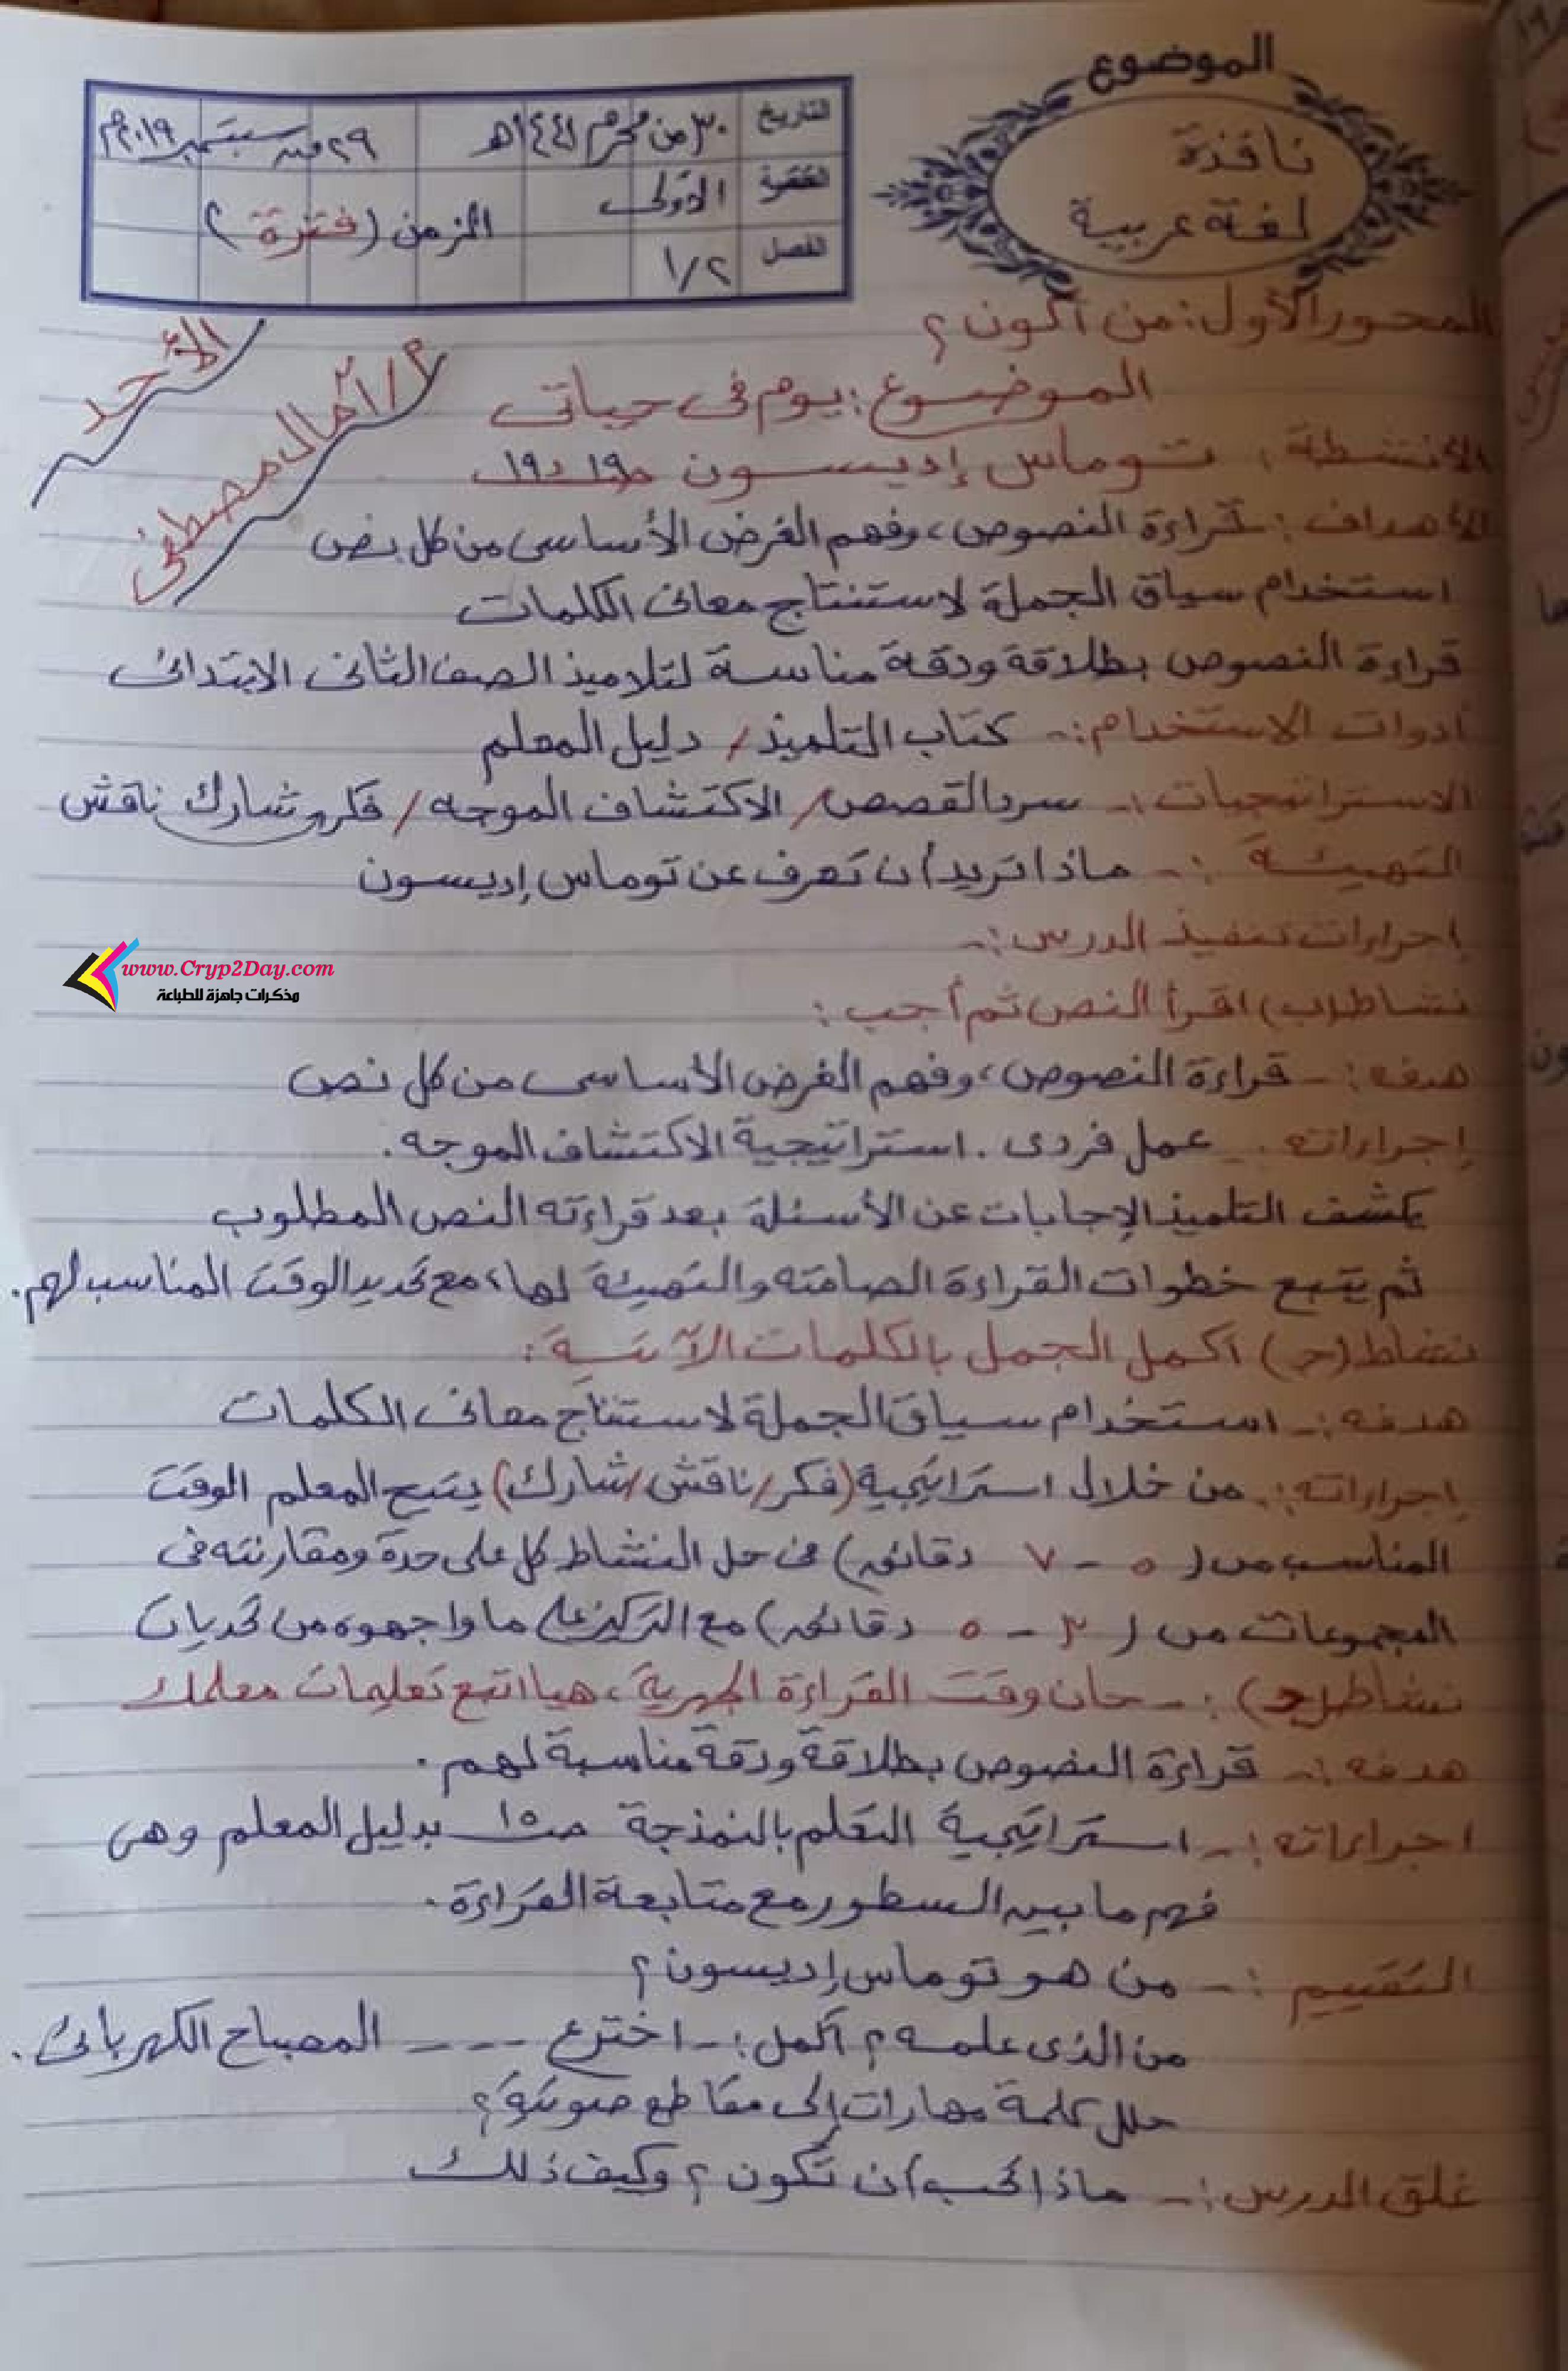 الموضوع
نافذة
لغة عربية
التاريخ ٣٠ من محرم ١٤٤١هـ ٢٩ من سبتمبر ٢٠١٩م
الفترة الأولى الزمن (فترة)
الفصل ١/٢
الأحد
م/آمال مصطفى
المحور الأول: من أكون؟
الموضوع: يوم فى حياتى
الأنشطة: توماس إديسون
الأهداف: قراءة النصوص، وفهم الغرض الأساسى من كل نص
استخدام سياق الجملة لاستنتاج معانى الكلمات
قراءة النصوص بطلاقة ودقة مناسبة لتلاميذ الصف الثانى الابتدائى
أدوات الاستخدام:- كتاب التلميذ/ دليل المعلم
الاستراتيجيات:- سرد القصص/ الاكتشاف الموجه/ فكر، شارك ناقش
التهيئة:- ماذا تريد أن تعرف عن توماس إديسون
www.Cryp2Day.com
مذكرات جاهزة للطباعة
إجراءات تنفيذ الدرس:-
نشاط (ب) اقرأ النص ثم أجب:
هدفه:- قراءة النصوص، وفهم الغرض الأساسى من كل نص
إجراءاته:- عمل فردى. استراتيجية الاكتشاف الموجه.
يكشف التلميذ الإجابات عن الأسئلة بعد قراءته النص المطلوب
ثم يتبع خطوات القراءة الصامته والتهيئة لها، مع تحديد الوقت المناسب لهم.
نشاط (ج) أكمل الجمل بالكلمات الآتية:
هدفه:- استخدام سياق الجملة لاستنتاج معانى الكلمات
إجراءاته:- من خلال استراتيجية (فكر/ناقش/شارك) يتيح المعلم الوقت
المناسب من (٥ - ٧ دقائق) فى حل النشاط كل على حدة ومقارنته فى
المجموعات من (٣ - ٥ دقائق) مع التركيز على ما واجهوه من تحديات
نشاط (د):- حان وقت القراءة الجهرية، هيا اتبع تعليمات معلمك
هدفه:- قراءة النصوص بطلاقة ودقة مناسبة لهم.
اجراءاته:- استراتيجية التعلم بالنمذجة صـ١٥ بدليل المعلم وهى
فهم ما بين السطور مع متابعة القراءة.
التقييم:- من هو توماس إديسون؟
من الذى علمه؟ أكمل:- اخترع ---- المصباح الكهربائى.
حلل كلمة مهارات إلى مقاطع صوتية؟
غلق الدرس:- ماذا تحب أن تكون؟ وكيف ذلك